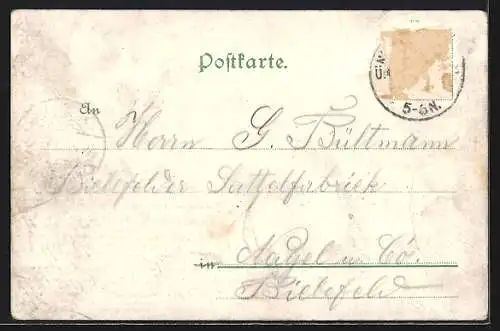 Postkarte.
5-6N.
An
Herrn G. Bültmann
Bielefelder Sattelfabriek
in Nagel u Co.
Bielefeld